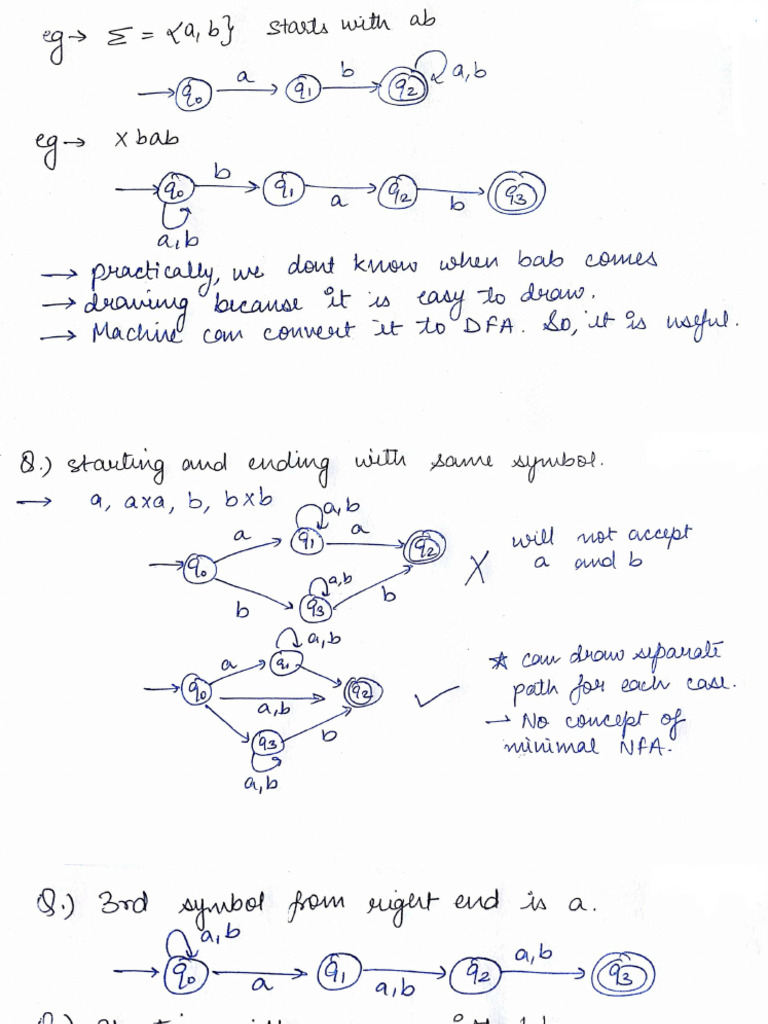 eg→ Σ = {a, b} starts with ab
→ q0 a q1 b q2 a,b
eg→ x bab
→ q0 b q1 a q2 b q3
a,b
→ practically, we dont know when bab comes
→ drawing because it is easy to draw.
→ Machine can convert it to DFA. So, it is useful.
Q.) starting and ending with same symbol.
→ a, axa, b, bxb
a,b
a q1 a q2
q0
b q3 a,b b
X will not accept
a and b
a,b
a q1
q0 a,b q2 ✓
q3 b
a,b
★ can draw separate
path for each case.
→ No concept of
minimal NFA.
Q.) 3rd symbol from right end is a.
a,b
→ q0 a q1 a,b q2 a,b q3